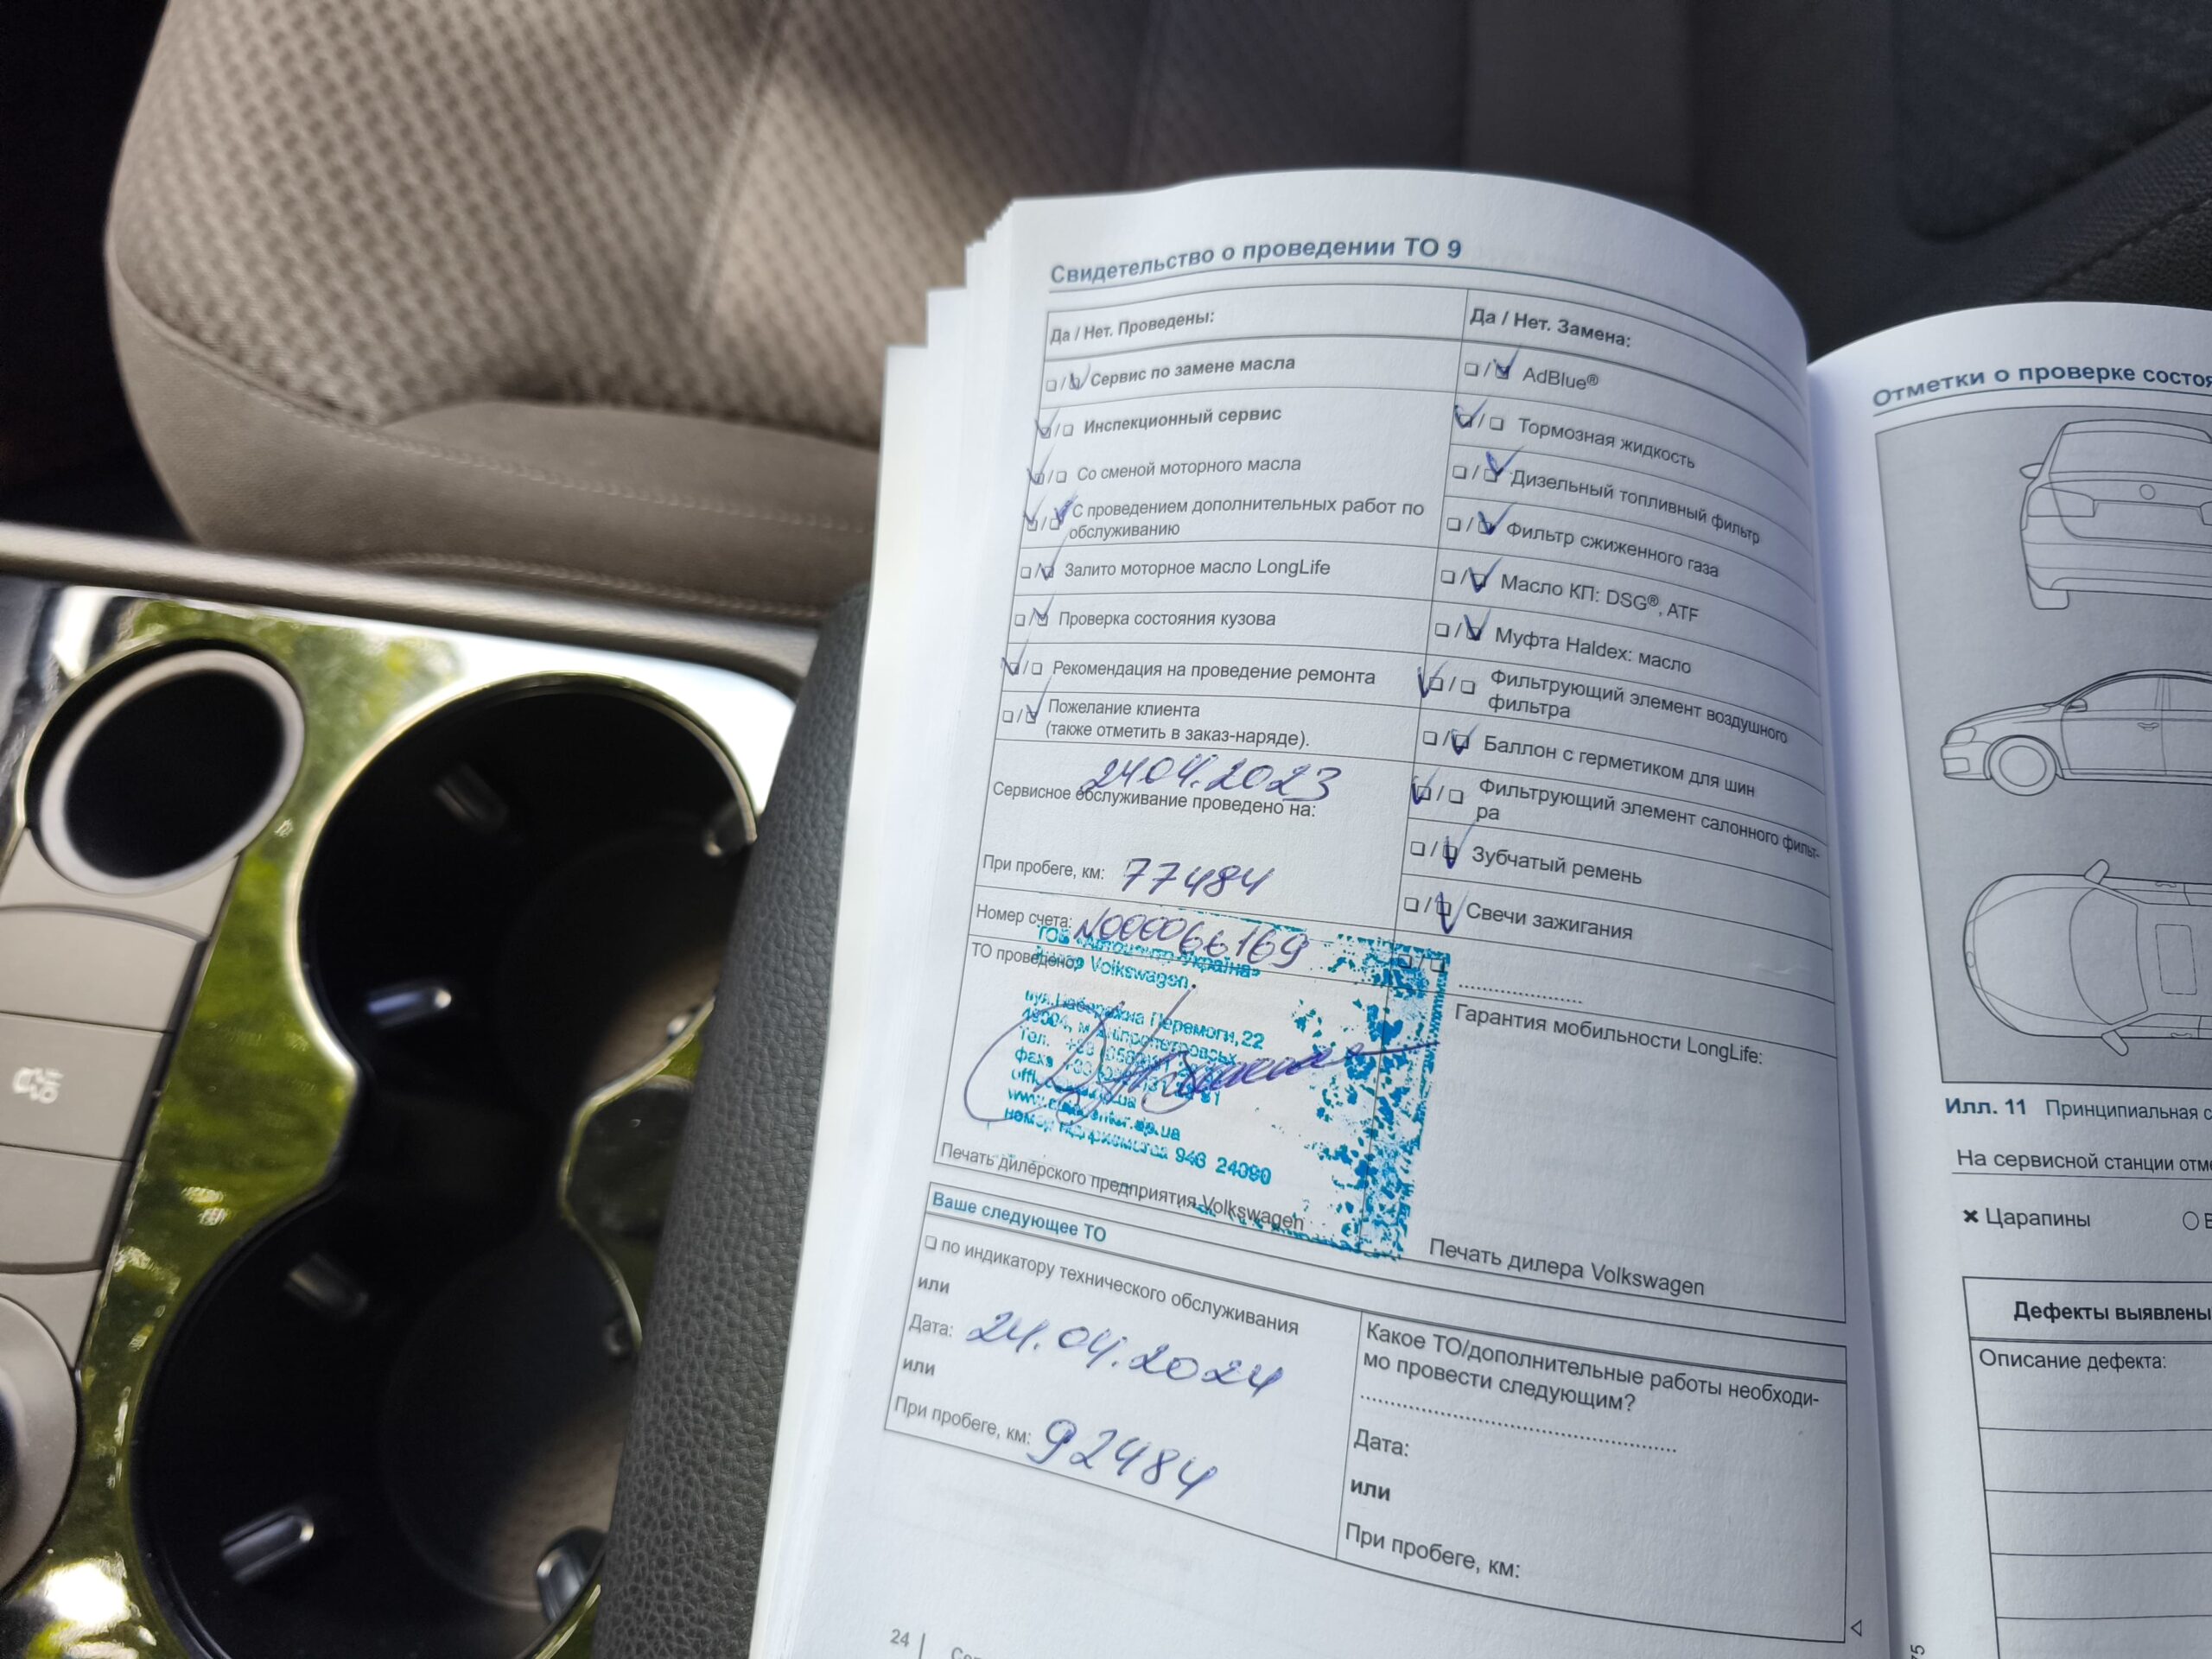 Свидетельство о проведении ТО 9
Да / Нет. Проведены:
Сервис по замене масла
Инспекционный сервис
Со сменой моторного масла
С проведением дополнительных работ по
обслуживанию
Залито моторное масло LongLife
Проверка состояния кузова
Рекомендация на проведение ремонта
Пожелание клиента
(также отметить в заказ-наряде).
24.04.2023
Сервисное обслуживание проведено на:
При пробеге, км: 77484
Номер счета: N000066169
ТО проведено
ТОВ «Автоцентр Україна»
Volkswagen
вул. Набережна Перемоги, 22
м. Дніпропетровськ
Тел.
факс
номер підприємства 946 24090
Печать дилерского предприятия Volkswagen
Да / Нет. Замена:
AdBlue®
Тормозная жидкость
Дизельный топливный фильтр
Фильтр сжиженного газа
Масло КП: DSG®, ATF
Муфта Haldex: масло
Фильтрующий элемент воздушного
фильтра
Баллон с герметиком для шин
Фильтрующий элемент салонного фильт-
ра
Зубчатый ремень
Свечи зажигания
Гарантия мобильности LongLife:
Печать дилера Volkswagen
Ваше следующее ТО
по индикатору технического обслуживания
или
Дата: 24.04.2024
или
При пробеге, км: 92484
Какое ТО/дополнительные работы необходи-
мо провести следующим?
Дата:
или
При пробеге, км:
24
Отметки о проверке состоя
Илл. 11 Принципиальная с
На сервисной станции отме
Царапины
Дефекты выявлены
Описание дефекта: